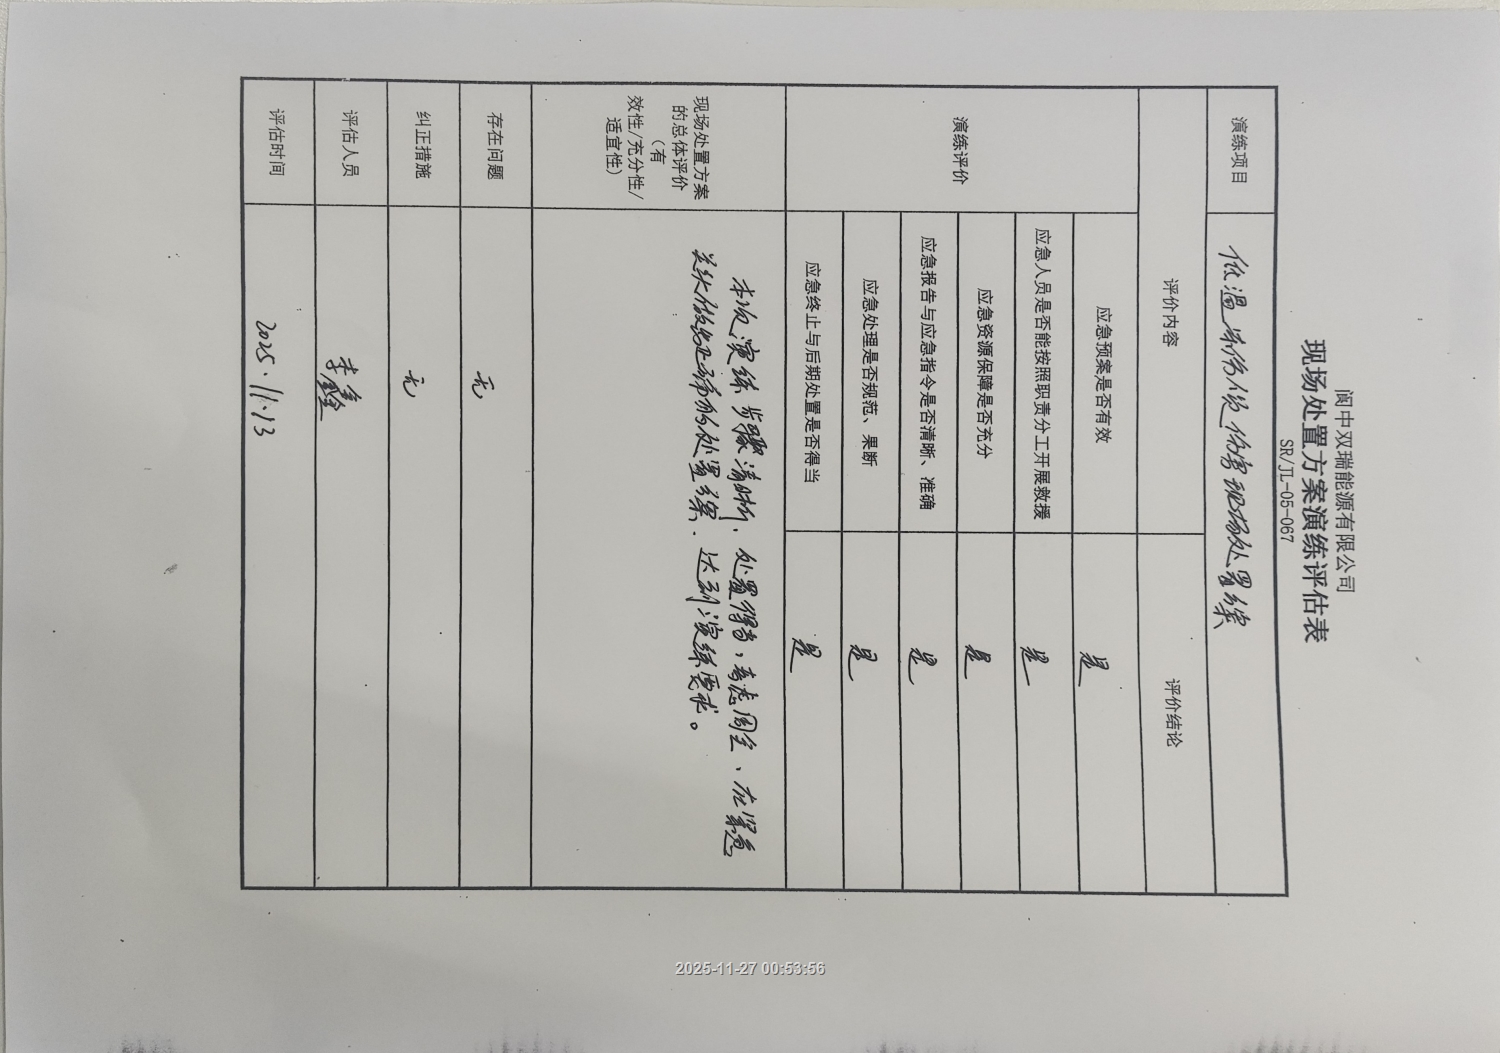 阆中双瑞能源有限公司
现场处置方案演练评估表
SR/JL-05-067
演练项目
低温冻伤人员伤害现场处置
演练评价
评价内容
评价结论
应急预案是否有效
是
应急人员是否能按照职责分工开展救援
是
应急资源保障是否充分
是
应急报告与应急指令是否清晰、准确
是
应急处理是否规范、果断
是
应急终止与后期处置是否得当
是
现场处置方案
的总体评价
（有
效性/充分性/
适宜性）
本次演练步骤清晰、处置得当，考虑周全、在紧急
关头做出正确的处置方案、达到演练要求。
存在问题
无
纠正措施
无
评估人员
李鑫
评估时间
2025.11.13
2025-11-27 00:53:56